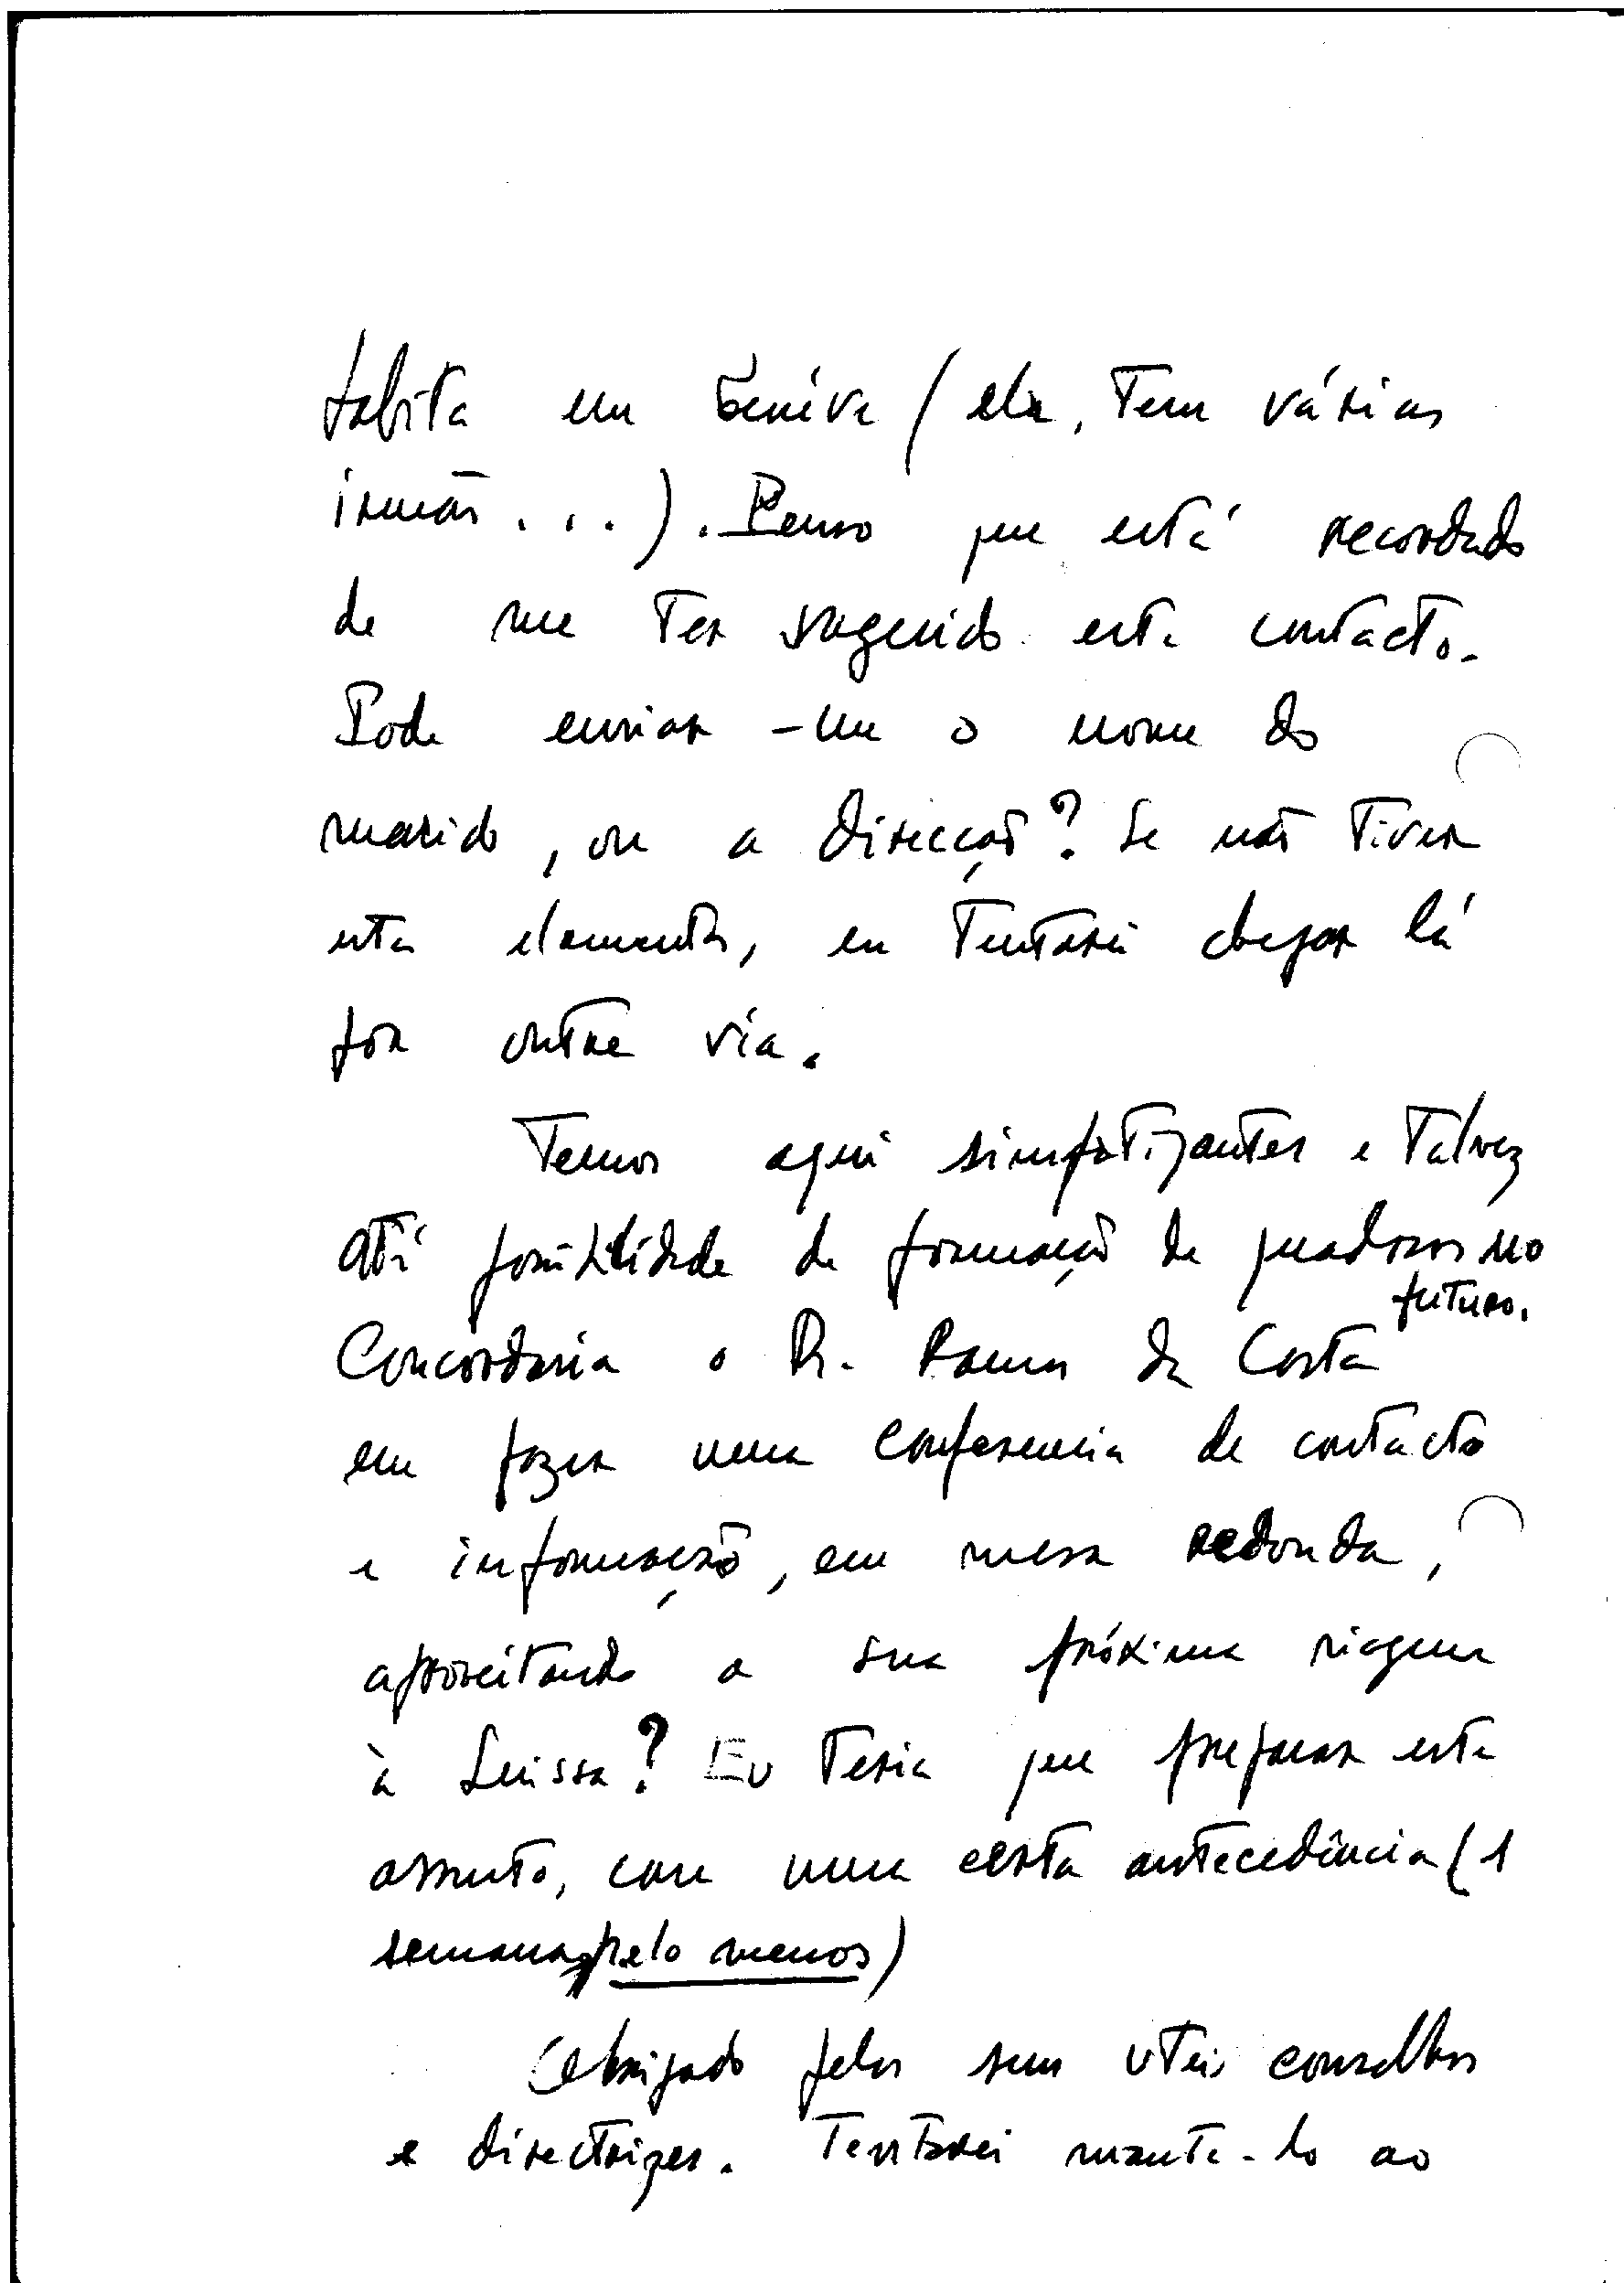 habita em Genéva (ela, tem várias
irmãs...). Penso que está recordado
de me ter sugerido este contacto.
Pode enviar-me o nome do
marido, ou a direcção? Se não tiver
estes elementos, eu tentarei chegar lá
por outra via.
Temos aqui simpatizantes e talvez
até possibilidade de formação de quadros no
futuro.
Concordaria o Dr. Ramos da Costa
em fazer uma conferencia de contacto
e informação, em mesa redonda,
aproveitando a sua próxima viagem
à Suissa? Eu teria que preparar este
assunto, com uma certa antecedência (1
semana pelo menos)
Obrigado pelos seus uteis conselhos
e directrizes. Tentarei mante-lo ao